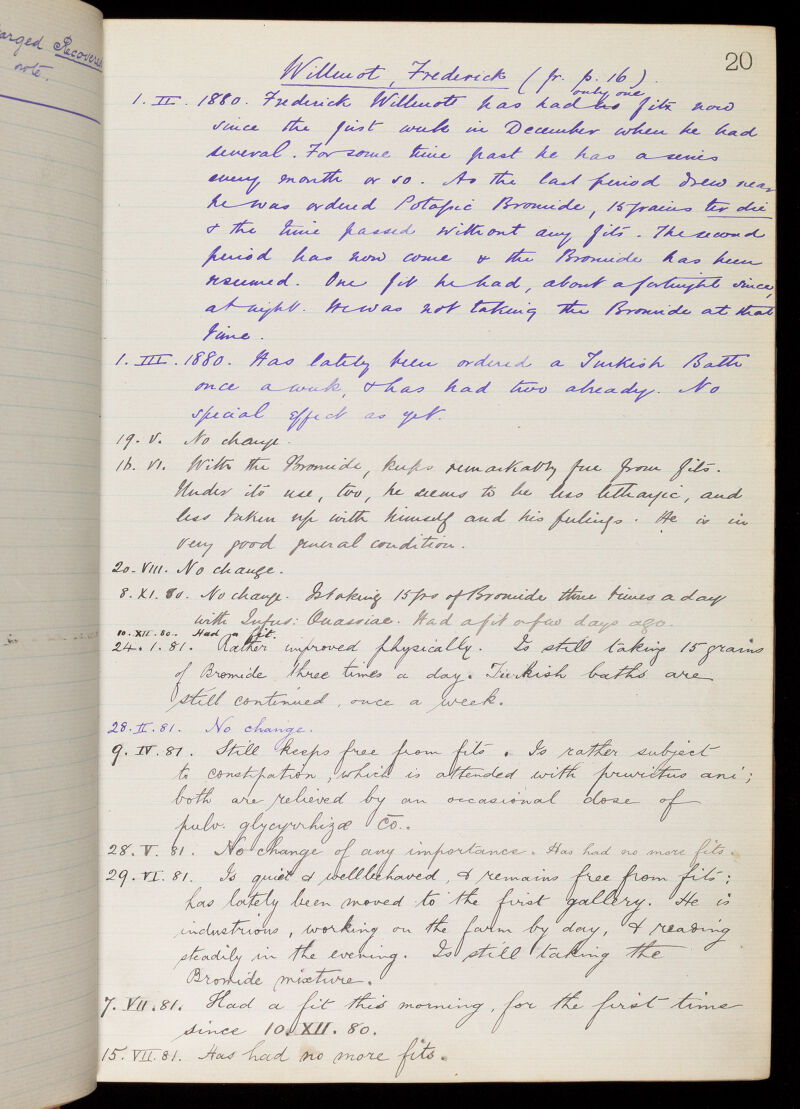 arged Recovered
note.
20
Willmot, Frederick (fr. p. 16).
only one
1. II. 1880. Frederick Willmott has had no fits now
since the first week in December when he had
several. For some time past he has a series
every month or so. As the last period drew near
he was ordered Potassic Bromide, 15 grains ter die
& the time passed without any fits. The second
period has now come & the Bromide has been
resumed. One fit he had, about a fortnight since,
at night. He was not taking the Bromide at that
time.
1. III. 1880. Has lately been ordered a Turkish Bath
once a week, & has had two already. No
special effect as yet.
19. V. No change.
16. VI. With the Bromide, keeps remarkably free from fits.
Under its use, too, he seems to be less lethargic, and
less taken up with himself and his feelings. He is in
very good general condition.
20. VIII. No change.
8. XI. 80. No change. Is taking 15 grs of Bromide three times a day
with Infus: Quassiae. Had a fit a few days ago.
10. XII. 80. Had a fit.
24. 1. 81. Rather improved physically. Is still taking 15 grains
of Bromide three times a day. Turkish baths are
still continued, once a week.
28. II. 81. No change.
9. IV. 81. Still keeps free from fits. Is rather subject
to constipation, which is attended with pruritus ani;
both are relieved by an occasional dose of
pulv. glycyrrhizæ Co.
28. V. 81. No change of any importance. Has had no more fits.
29. VI. 81. Is quiet & wellbehaved, & remains free from fits;
has lately been moved to the first gallery. He is
industrious, working on the farm by day, & reading
steadily in the evening. Is still taking the
Bromide mixture.
7. VII. 81. Had a fit this morning, for the first time
since 10. XII. 80.
15. VII. 81. Has had no more fits.